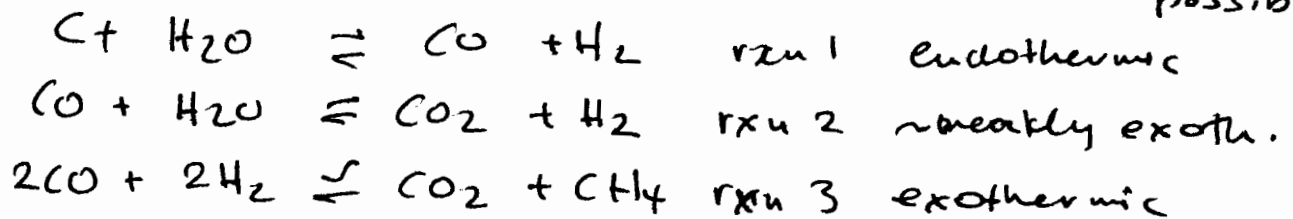 possib
C + H2O ⇌ CO + H2 rxn 1 endothermic
CO + H2O ⇌ CO2 + H2 rxn 2 ~weakly exoth.
2CO + 2H2 ⇌ CO2 + CH4 rxn 3 exothermic